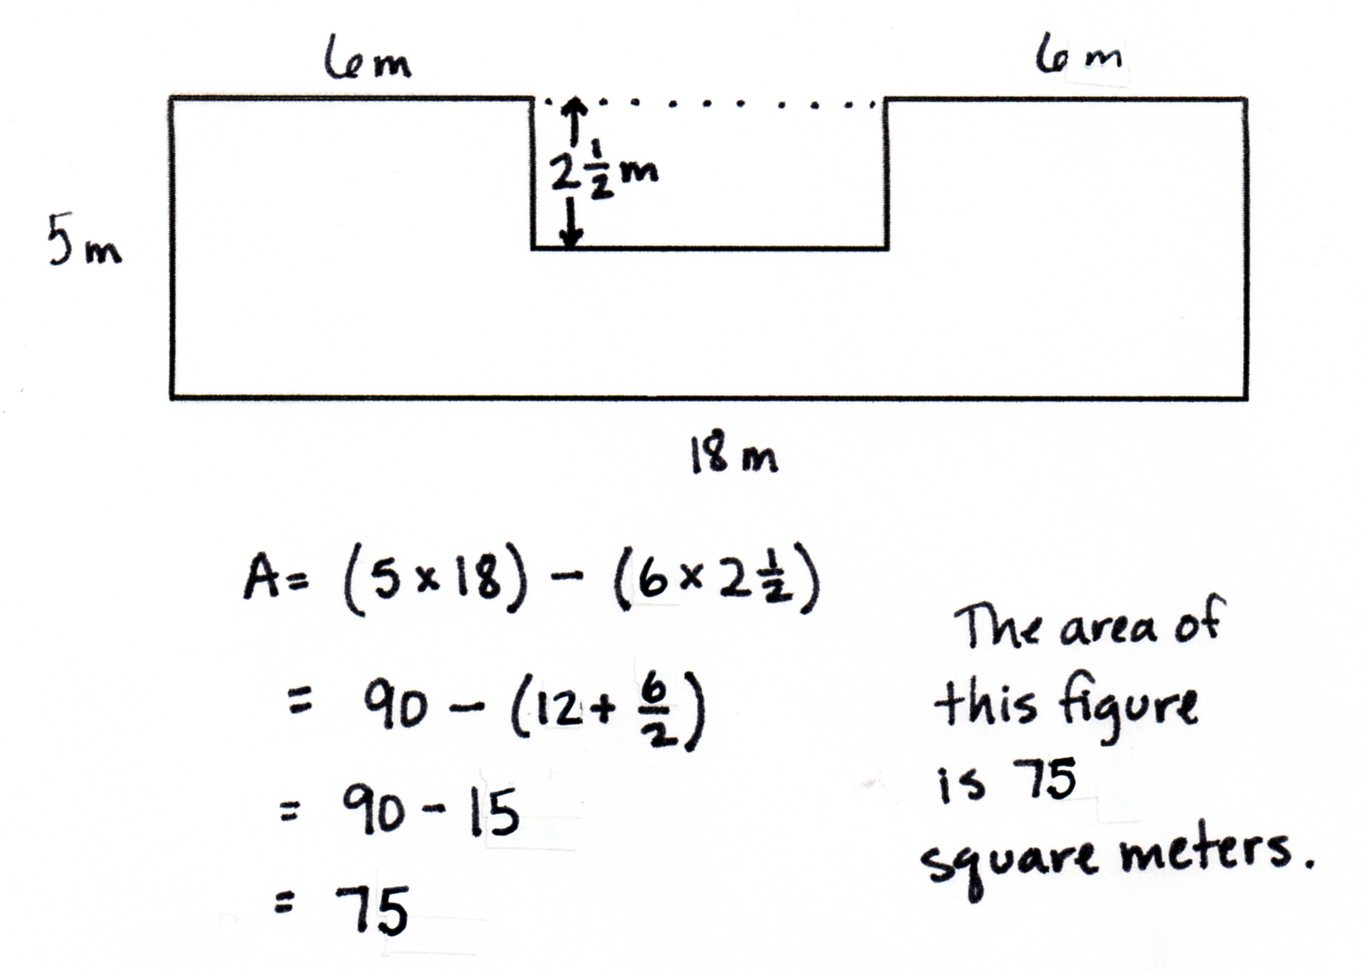 6m
6m
2 1/2 m
5m
18m
A= (5×18) - (6×2 1/2)
= 90 - (12+ 6/2)
= 90 - 15
= 75
The area of
this figure
is 75
square meters.